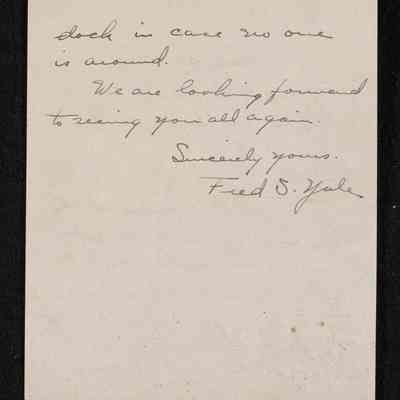 dock in case no one
is around.
We are looking forward
to seeing you all again.
Sincerely yours.
Fred S. Yale